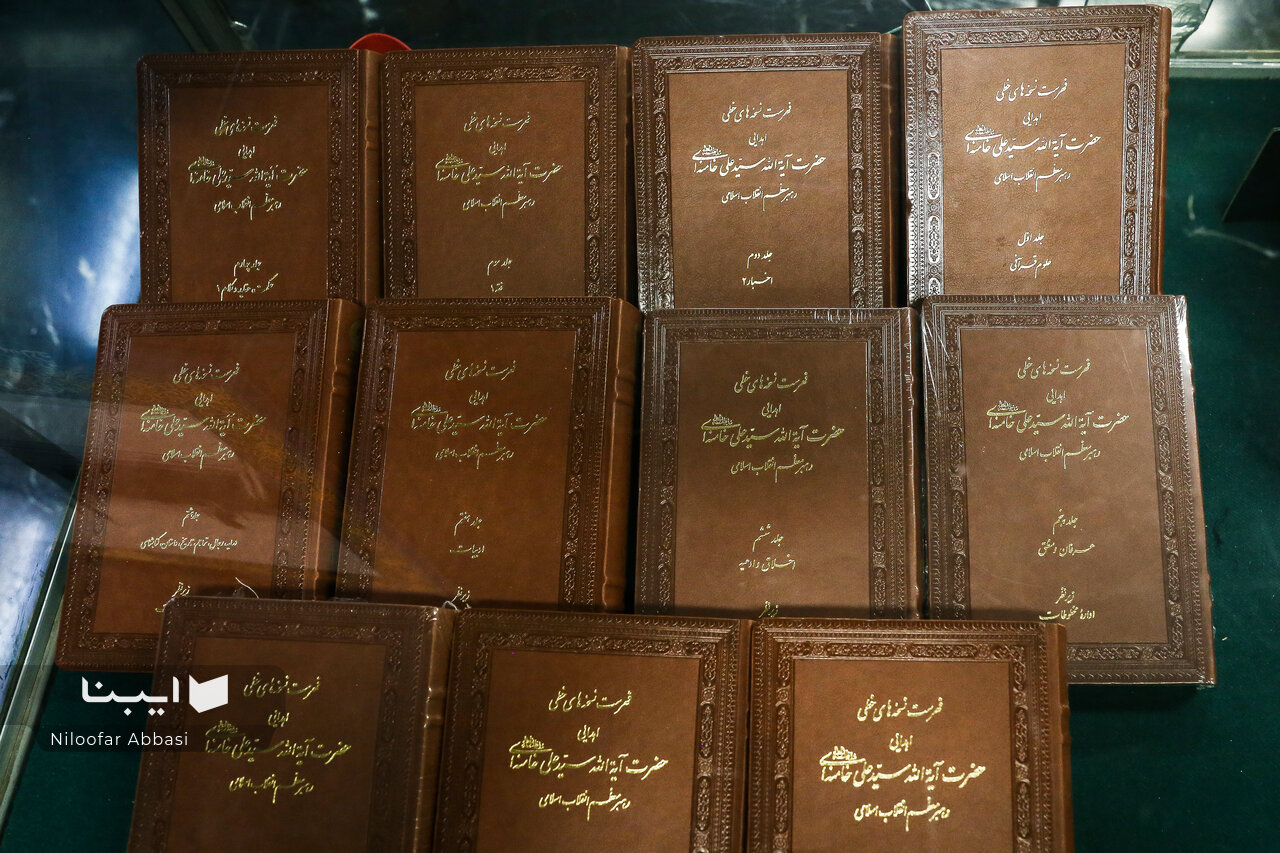 فهرست نسخه‌های خطی
اهدایی
حضرت آیة الله سید علی خامنه‌ای
رهبر معظم انقلاب اسلامی
جلد اول
علوم قرآنی
فهرست نسخه‌های خطی
اهدایی
حضرت آیة الله سید علی خامنه‌ای
رهبر معظم انقلاب اسلامی
جلد دوم
اخبار ۲
فهرست نسخه‌های خطی
اهدایی
حضرت آیة الله سید علی خامنه‌ای
رهبر معظم انقلاب اسلامی
جلد سوم
فقه ۱
فهرست نسخه‌های خطی
اهدایی
حضرت آیة الله سید علی خامنه‌ای
رهبر معظم انقلاب اسلامی
جلد چهارم
حکمت، عقاید و کلام ۱
فهرست نسخه‌های خطی
اهدایی
حضرت آیة الله سید علی خامنه‌ای
رهبر معظم انقلاب اسلامی
جلد پنجم
عرفان و منطق
زیر نظر
اداره مخطوطات
فهرست نسخه‌های خطی
اهدایی
حضرت آیة الله سید علی خامنه‌ای
رهبر معظم انقلاب اسلامی
جلد ششم
اخلاق و ادعیه
زیر نظر
فهرست نسخه‌های خطی
اهدایی
حضرت آیة الله سید علی خامنه‌ای
رهبر معظم انقلاب اسلامی
جلد هفتم
ادبیات
زیر نظر
فهرست نسخه‌های خطی
اهدایی
حضرت آیة الله سید علی خامنه‌ای
رهبر معظم انقلاب اسلامی
جلد هشتم
درایه، رجال، تراجم، تاریخ، داستان، کتابشناسی
زیر نظر
فهرست نسخه‌های خطی
اهدایی
حضرت آیة الله سید علی خامنه‌ای
رهبر معظم انقلاب اسلامی
فهرست نسخه‌های خطی
اهدایی
حضرت آیة الله سید علی خامنه‌ای
رهبر معظم انقلاب اسلامی
فهرست نسخه‌های خطی
اهدایی
حضرت آیة الله سید علی خامنه‌ای
رهبر معظم انقلاب اسلامی
ایبنا
Niloofar Abbasi